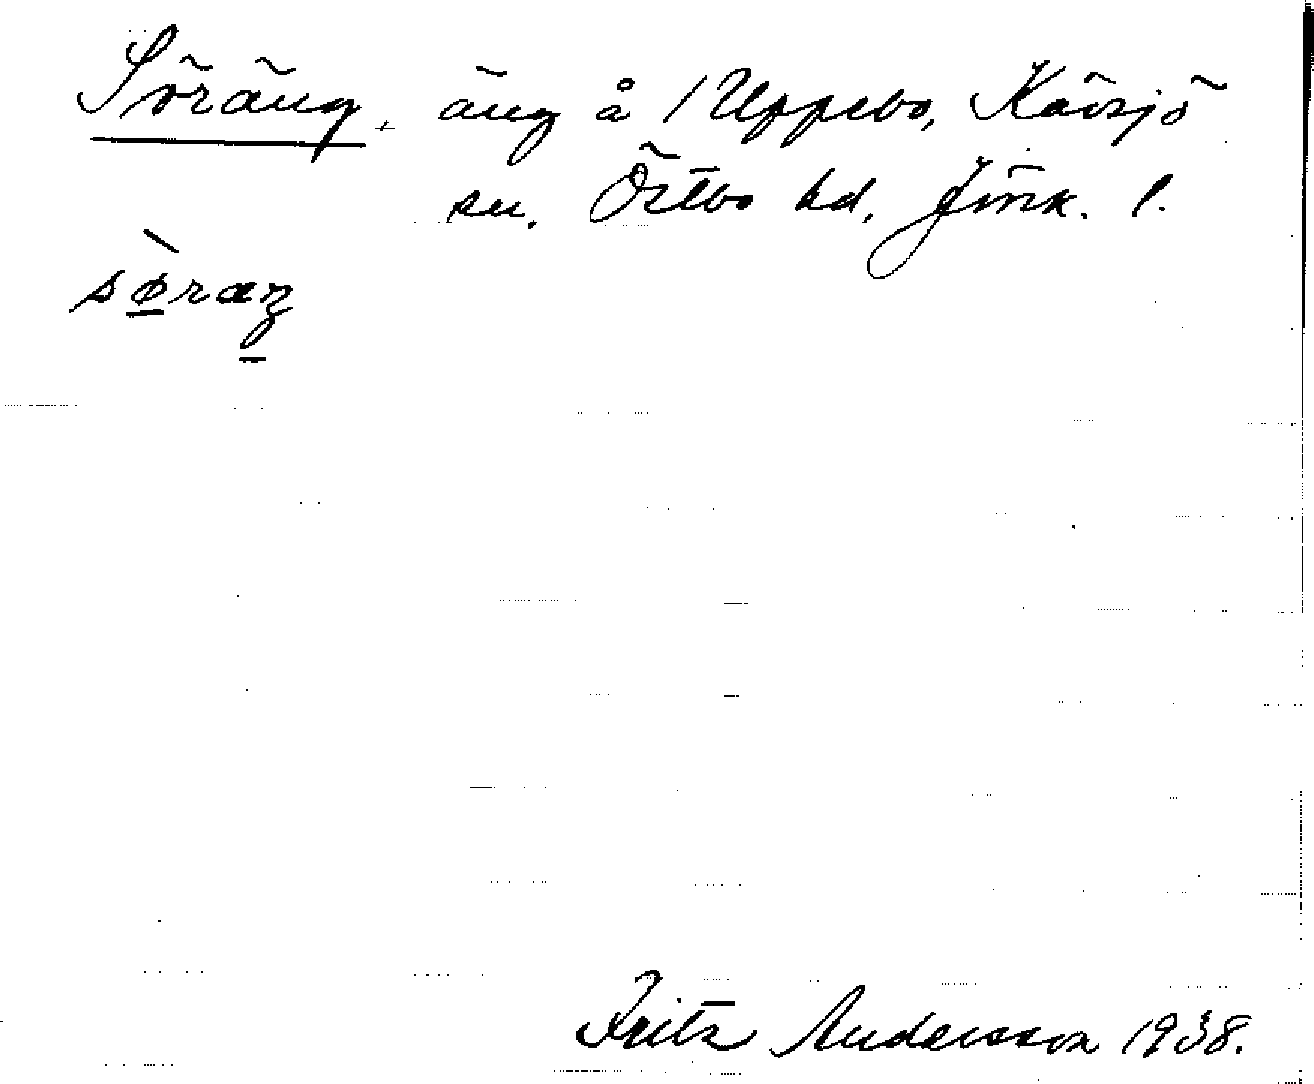 Söräng, äng å / Uppebo, Kävsjö
sn. Östbo hd, Jönk. l.
sø̀raŋ
Fritz Andersson 1938.